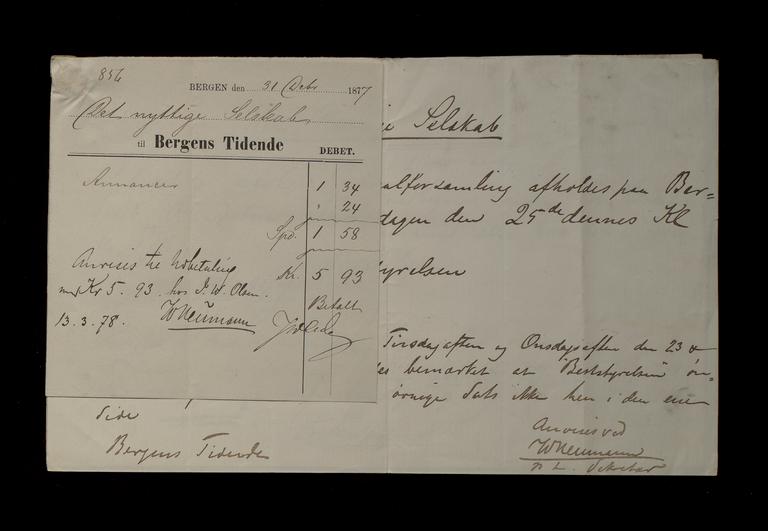 856
BERGEN den 31 Debr 1877
Det nyttige Selskab
til Bergens Tidende
DEBET.
Annoncer 1 34
" 24
Spd. 1 58
Kr. 5 93
Anvises til Udbetaling
med Kr 5. 93. hos J. W. Olsen.
13. 3. 78. WNeumann
Betalt
Selskab
alforsamling afholdes paa Ber=
dagen den 25de dennes Kl
tyrelsen
Tirsdag aften og Onsdag aften den 23 &
bemærket at "Bestyrelsen" øn=
øvrige Sats ikke hen i den ene
Side
Bergens Tidende
Anvises ved
WNeumann
p. t. Sekretær